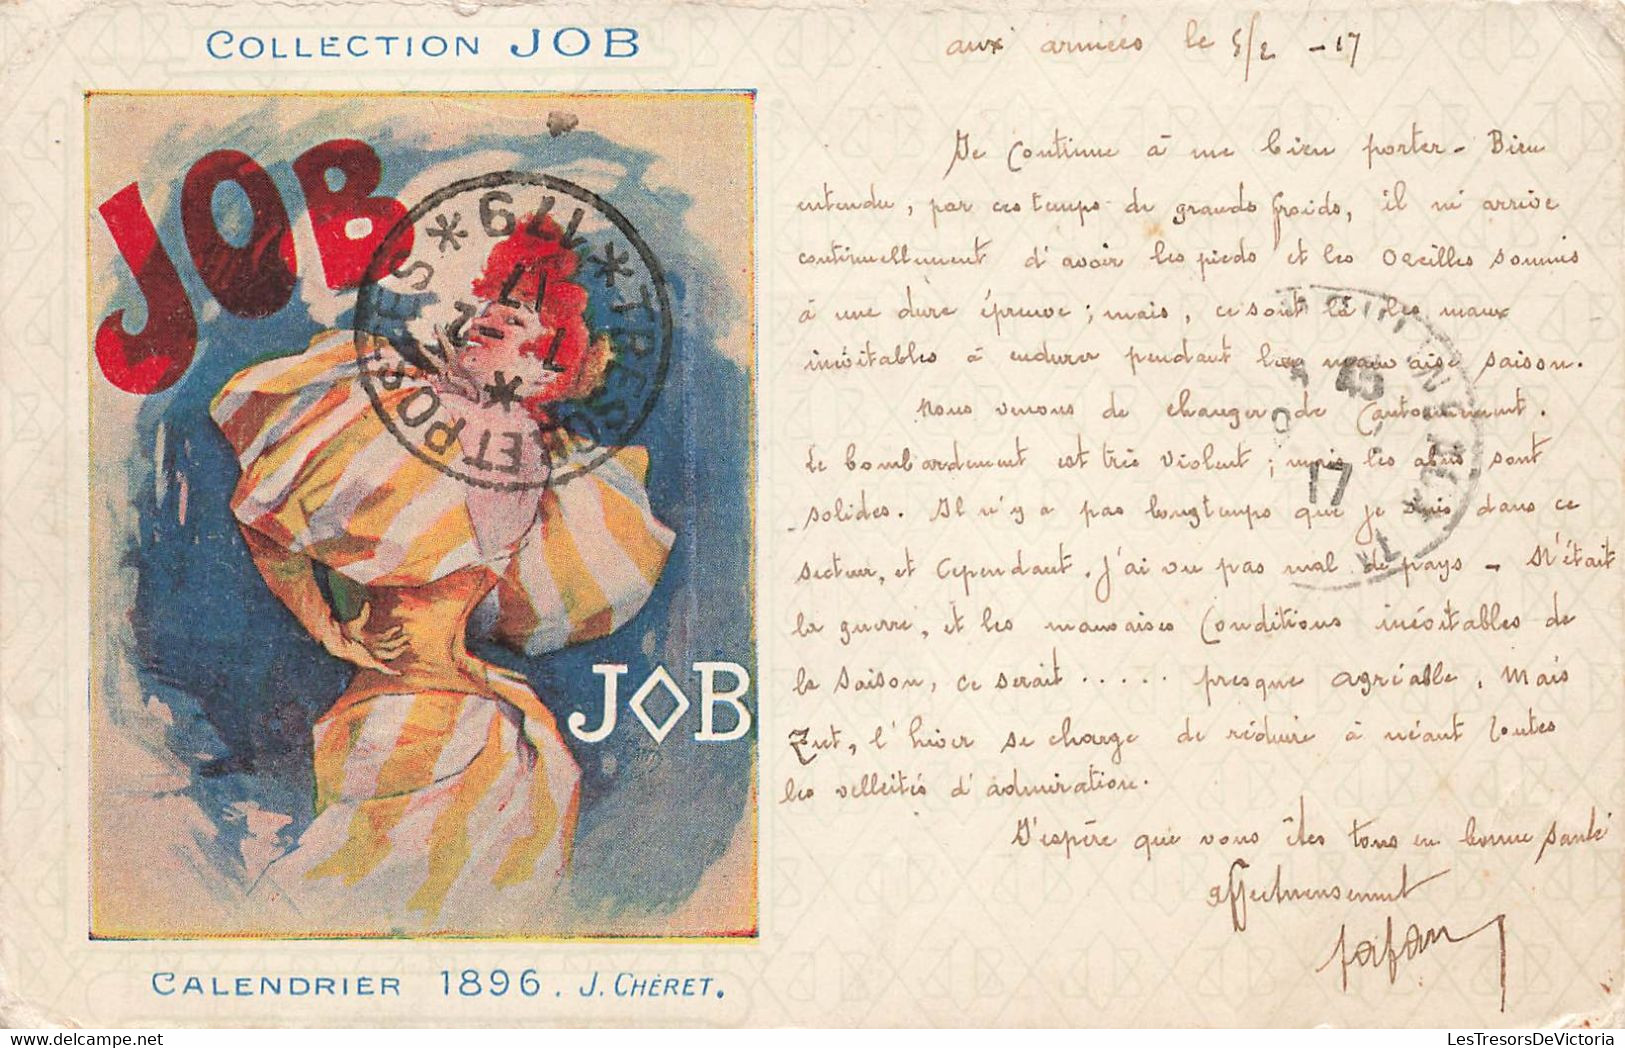 COLLECTION JOB
JOB
JOB
CALENDRIER 1896. J. CHÉRET.
*TRESOR ET POSTES* 179
*
7-2
17
aux armées le 5/2 -17
Je continue à me bien porter - Bien
entendu, par ces temps de grands froids, il m'arrive
continuellement d'avoir les pieds et les oreilles soumis
à une dure épreuve ; mais, ce sont là les maux
inévitables à endurer pendant les mauvaise saison.
Nous venons de changer de cantonnement.
Le bombardement est très violent ; mais les abris sont
solides. Il n'y a pas longtemps que je suis dans ce
secteur, et cependant, j'ai vu pas mal de pays - N'était
la guerre, et les mauvaises conditions inévitables de
la saison, ce serait ..... presque agréable, mais
Zut, l'hiver se charge de réduire à néant toutes
les velleités d'admiration.
J'espère que vous êtes tous en bonne santé
affectueusement
17
LesTresorsDeVictoria